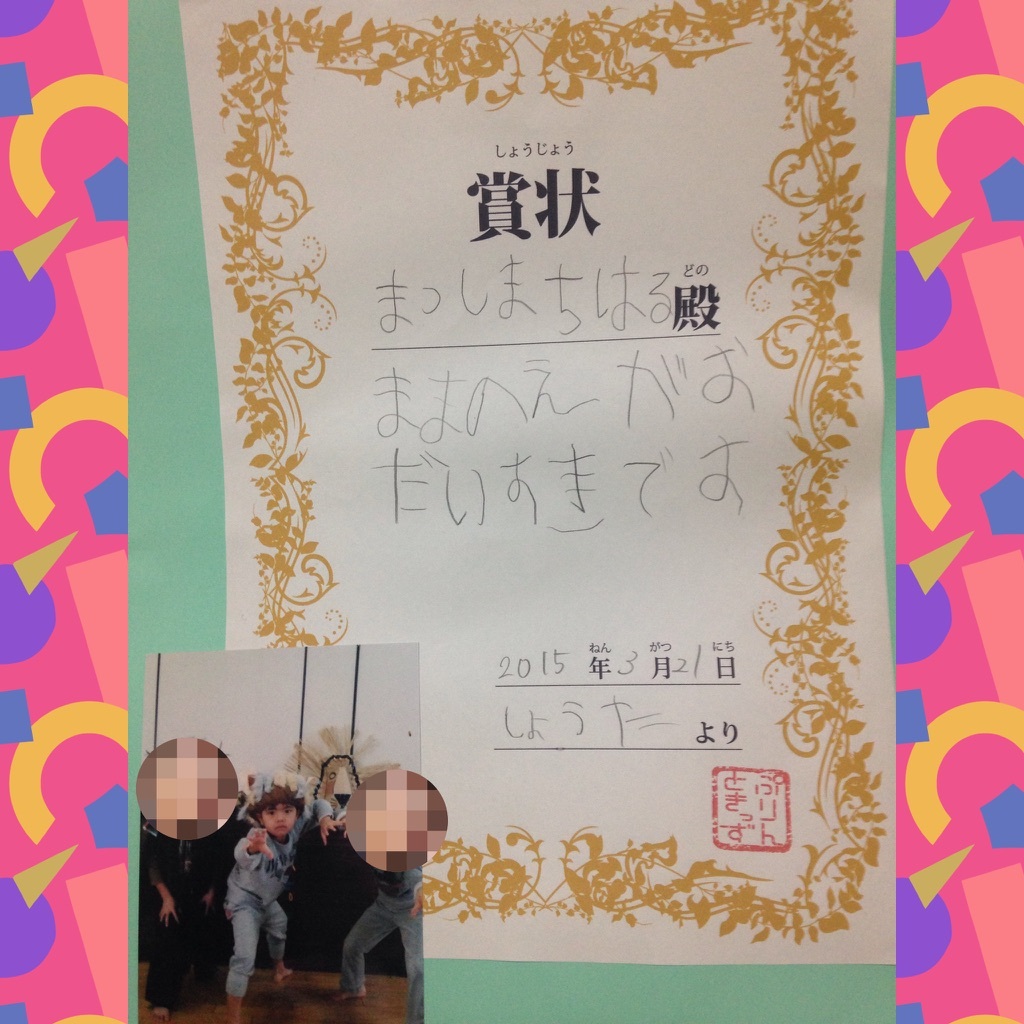 しょうじょう
賞状
まつしまちはる殿
どの
ままのえーがお
だいすきです
ねん がつ にち
2015年3月21日
しょうたより
ぷりん
ときっず